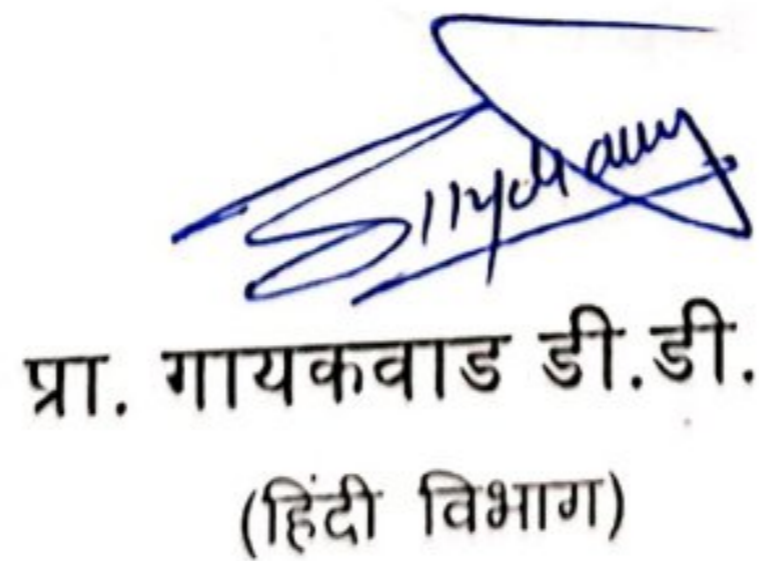 प्रा. गायकवाड डी.डी.
(हिंदी विभाग)